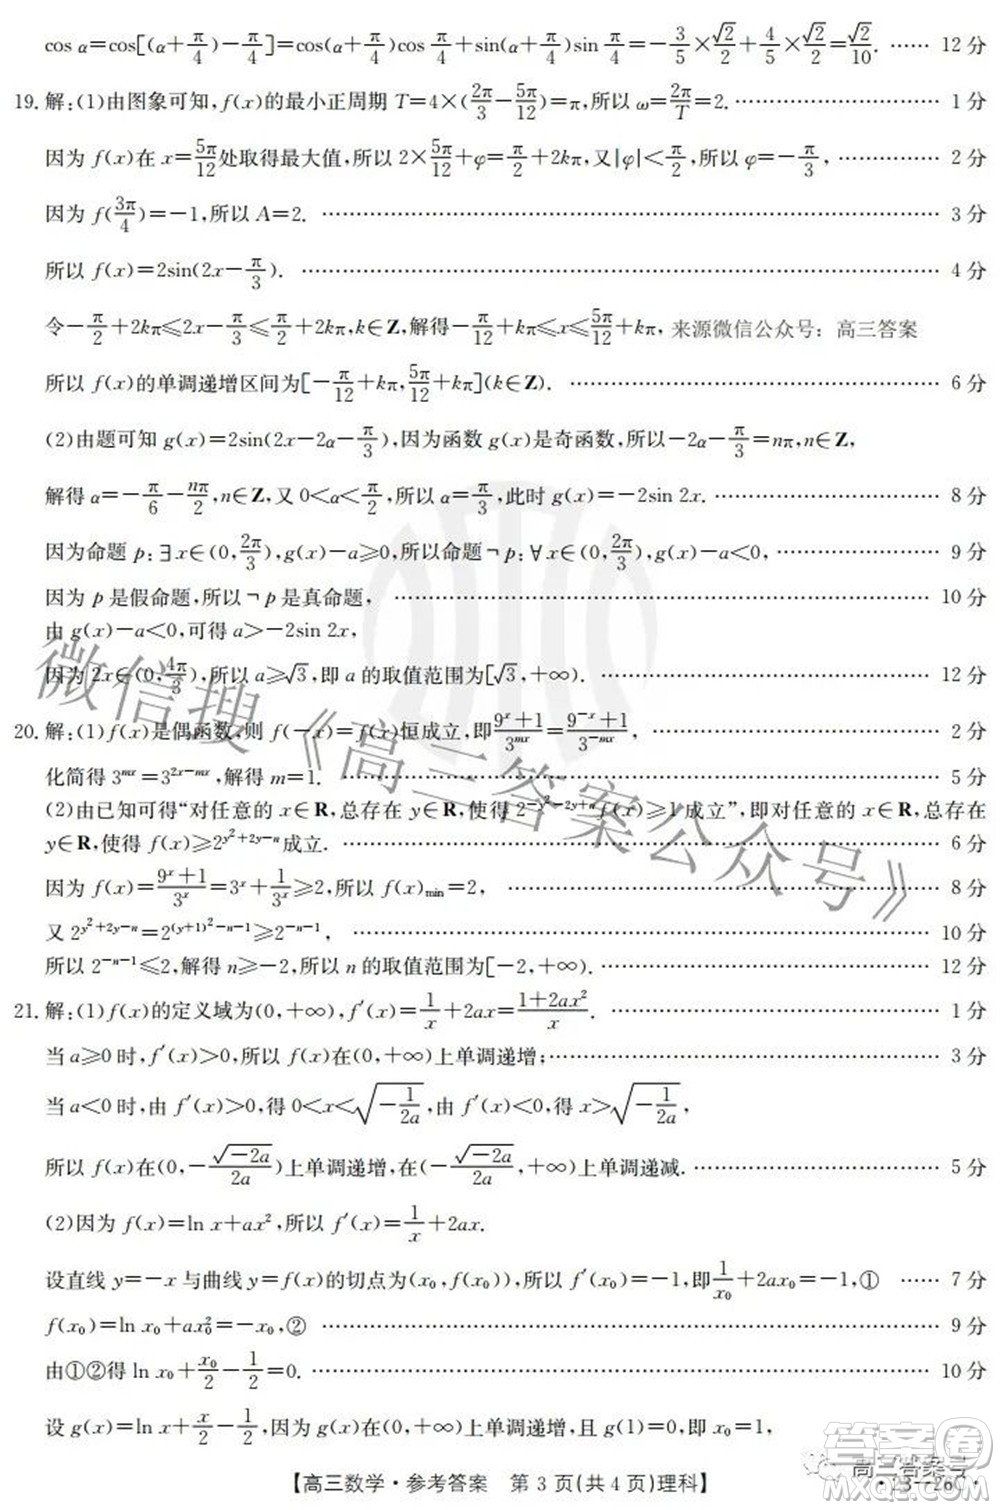 cos α=cos[(α+π/4)-π/4]=cos(α+π/4)cos π/4+sin(α+π/4)sin π/4=-3/5×√2/2+4/5×√2/2=√2/10. …… 12 分
19. 解:(1)由图象可知,f(x)的最小正周期 T=4×(2π/3-5π/12)=π,所以 ω=2π/T=2. …… 1 分
因为 f(x)在 x=5π/12处取得最大值,所以 2×5π/12+φ=π/2+2kπ,又|φ|<π/2,所以 φ=-π/3, …… 2 分
因为 f(3π/4)=-1,所以 A=2. …… 3 分
所以 f(x)=2sin(2x-π/3). …… 4 分
令-π/2+2kπ≤2x-π/3≤π/2+2kπ,k∈Z,解得-π/12+kπ≤x≤5π/12+kπ, 来源微信公众号:高三答案
所以 f(x)的单调递增区间为[-π/12+kπ,5π/12+kπ](k∈Z). …… 6 分
(2)由题可知 g(x)=2sin(2x-2α-π/3),因为函数 g(x)是奇函数,所以-2α-π/3=nπ,n∈Z,
解得 α=-π/6-nπ/2,n∈Z,又 0<α<π/2,所以 α=π/3,此时 g(x)=-2sin 2x. …… 8 分
因为命题 p:∃x∈(0,2π/3),g(x)-a≥0,所以命题¬p:∀x∈(0,2π/3),g(x)-a<0, …… 9 分
因为 p 是假命题,所以¬p 是真命题, …… 10 分
由 g(x)-a<0,可得 a>-2sin 2x,
因为 2x∈(0,4π/3),所以 a≥√3,即 a 的取值范围为[√3,+∞). …… 12 分
20. 解:(1)f(x)是偶函数,则 f(-x)=f(x)恒成立,即(9^x+1)/3^{mx}=(9^{-x}+1)/3^{-mx}, …… 2 分
化简得 3^{mx}=3^{2x-mx},解得 m=1. …… 5 分
(2)由已知可得“对任意的 x∈R,总存在 y∈R,使得 2^{-y²-2y+n}f(x)≥1 成立”,即对任意的 x∈R,总存在
y∈R,使得 f(x)≥2^{y²+2y-n}成立. …… 6 分
因为 f(x)=(9^x+1)/3^x=3^x+1/3^x≥2,所以 f(x)min=2, …… 8 分
又 2^{y²+2y-n}=2^{(y+1)²-n-1}≥2^{-n-1}, …… 10 分
所以 2^{-n-1}≤2,解得 n≥-2,所以 n 的取值范围为[-2,+∞). …… 12 分
21. 解:(1)f(x)的定义域为(0,+∞),f′(x)=1/x+2ax=(1+2ax²)/x. …… 1 分
当 a≥0 时,f′(x)>0,所以 f(x)在(0,+∞)上单调递增; …… 3 分
当 a<0 时,由 f′(x)>0,得 0<x<√(-1/2a),由 f′(x)<0,得 x>√(-1/2a),
所以 f(x)在(0,-√(-2a)/2a)上单调递增,在(-√(-2a)/2a,+∞)上单调递减. …… 5 分
(2)因为 f(x)=ln x+ax²,所以 f′(x)=1/x+2ax.
设直线 y=-x 与曲线 y=f(x)的切点为(x₀,f(x₀)),所以 f′(x₀)=-1,即1/x₀+2ax₀=-1,① …… 7 分
f(x₀)=ln x₀+ax₀²=-x₀,② …… 9 分
由①②得 ln x₀+x₀/2-1/2=0. …… 10 分
设 g(x)=ln x+x/2-1/2,因为 g(x)在(0,+∞)上单调递增,且 g(1)=0,即 x₀=1,
【高三数学·参考答案 第 3 页(共 4 页)理科】
·23-26C·
微信搜《高三答案公众号》
高三答案号